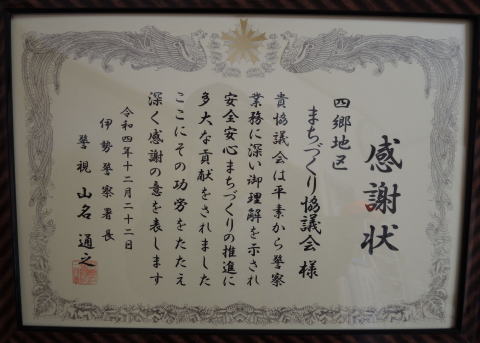 感謝状
四郷地区
まちづくり協議会 様
貴協議会は平素から警察
業務に深い御理解を示され
安全安心まちづくりの推進に
多大な貢献をされました
ここにその功労をたたえ
深く感謝の意を表します
令和四年十二月二十二日
伊勢警察署長
警視 山名通之